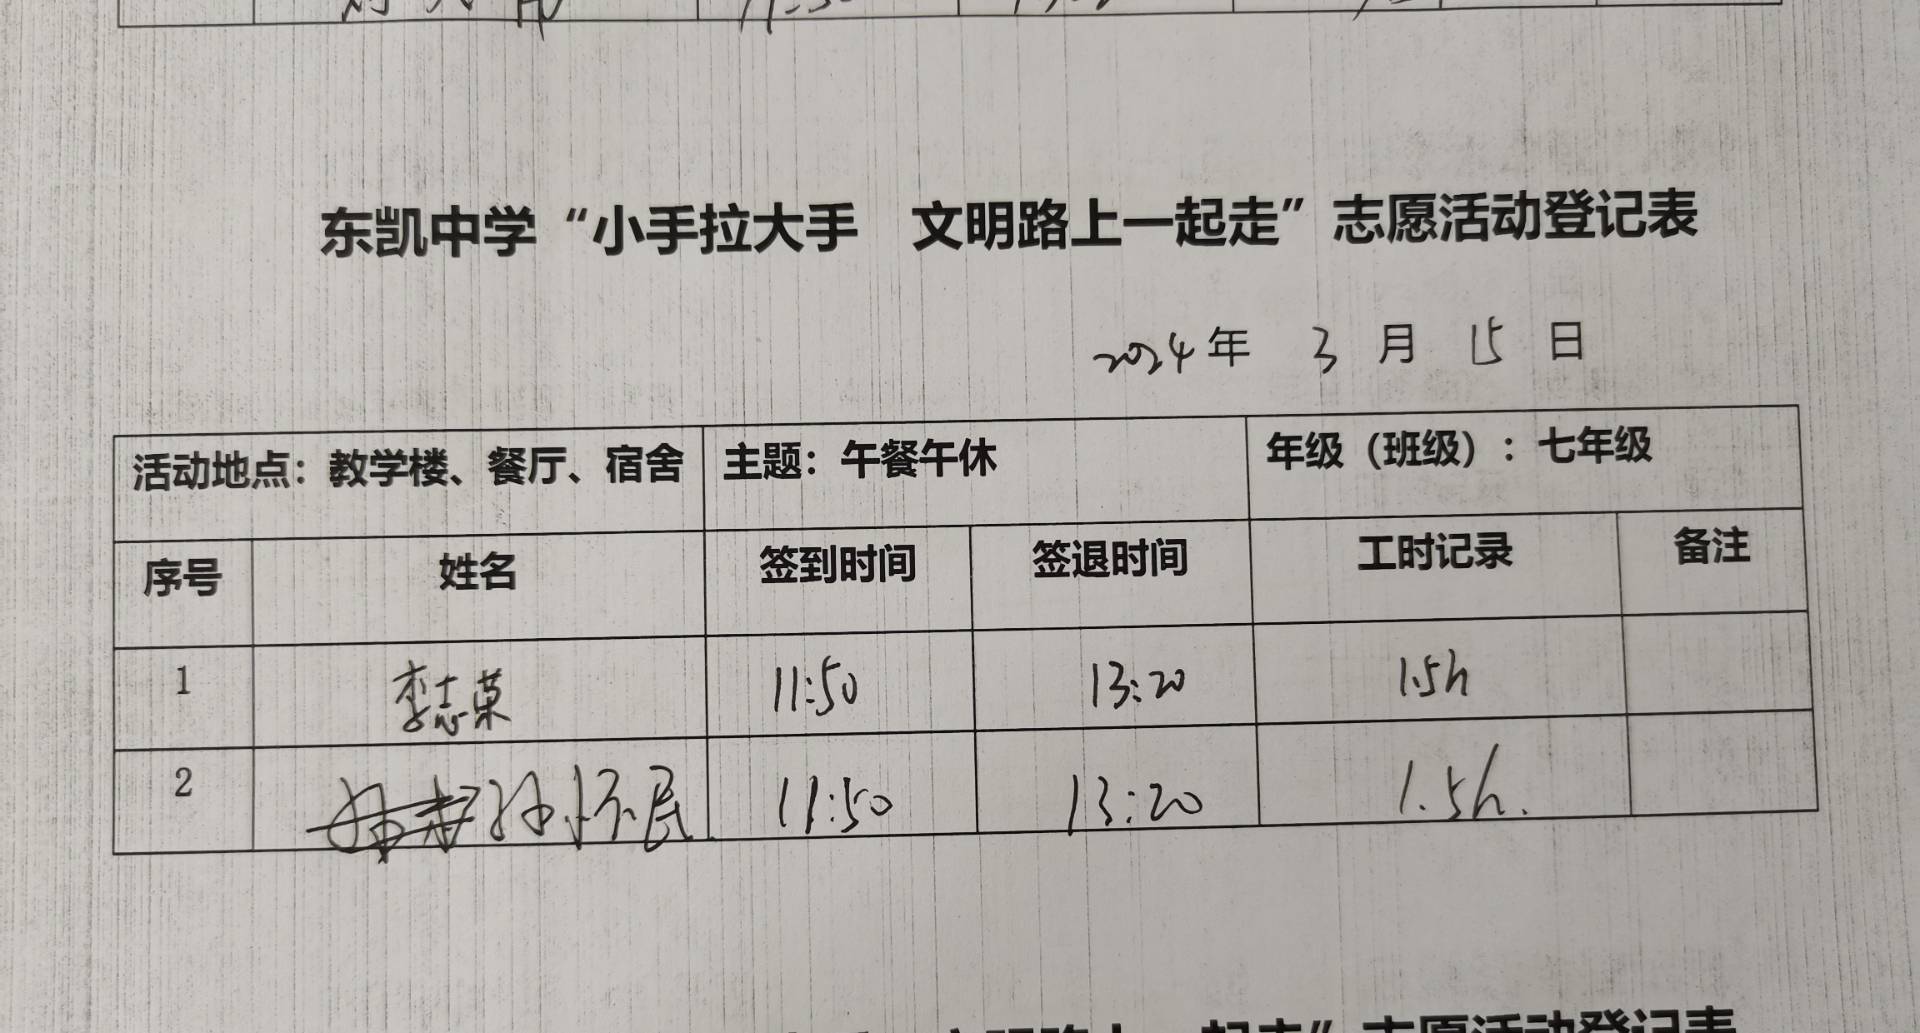 东凯中学“小手拉大手 文明路上一起走”志愿活动登记表
2024年 3月 15日
活动地点：教学楼、餐厅、宿舍 主题：午餐午休 年级（班级）：七年级
序号 姓名 签到时间 签退时间 工时记录 备注
1 李志荣 11:50 13:20 1.5h
2 孙怀民 11:50 13:20 1.5h.